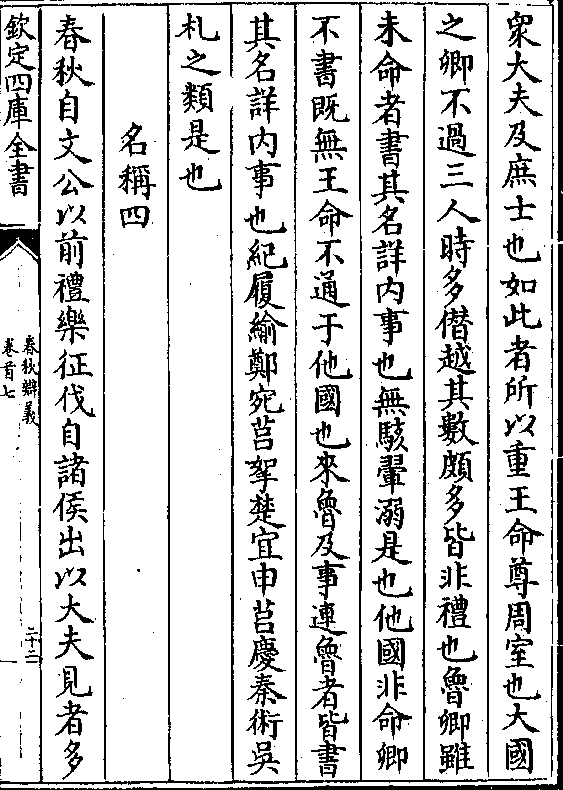 衆大夫及庶士也如此者所以重王命尊周室也大國
之卿不過三人時多僭越其數頗多皆非禮也魯卿雖
未命者書其名詳内事也無駭翬溺是也他國非命卿
不書既無王命不通于他國也來魯及事連魯者皆書
其名詳内事也紀履緰鄭宛莒挐楚宜申莒慶秦術吳
札之類是也
名稱四
春秋自文公以前禮樂征伐自諸侯出以大夫見者多
欽定四庫全書
春秋辯義
卷首七
二十二